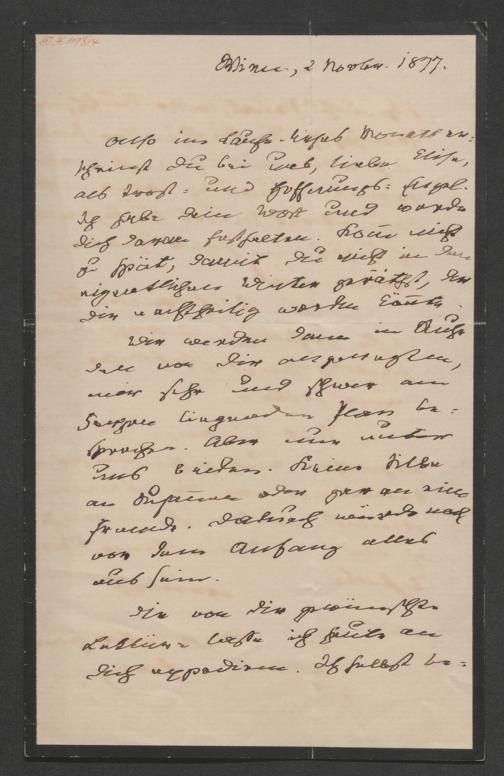 Wien, 2 Novber. 1877.
Also im Laufe dieses Monats er-
scheinst Du bei uns, liebe Elise,
als Trost- und Hoffnungs-Engel.
Ich habe dein Wort und werde
dich daran festhalten. Komm nicht
zu spät, damit du nicht in den
eigentlichen Winter geräthst, der
dir nachtheilig werden könnte.
Wir werden dann in Ruhe
den von dir angeregten,
mir sehr und schwer am
Herzen liegenden Plan be-
sprechen. Aber nur unter
uns beiden. Keine Silbe
an oder gar an eine
Fremde. Dadurch würde noch
vor dem Anfang alles
aus sein.
Die von dir gewünschte
Lektüre lasse ich heute an
dich expediren. Ich selbst be-